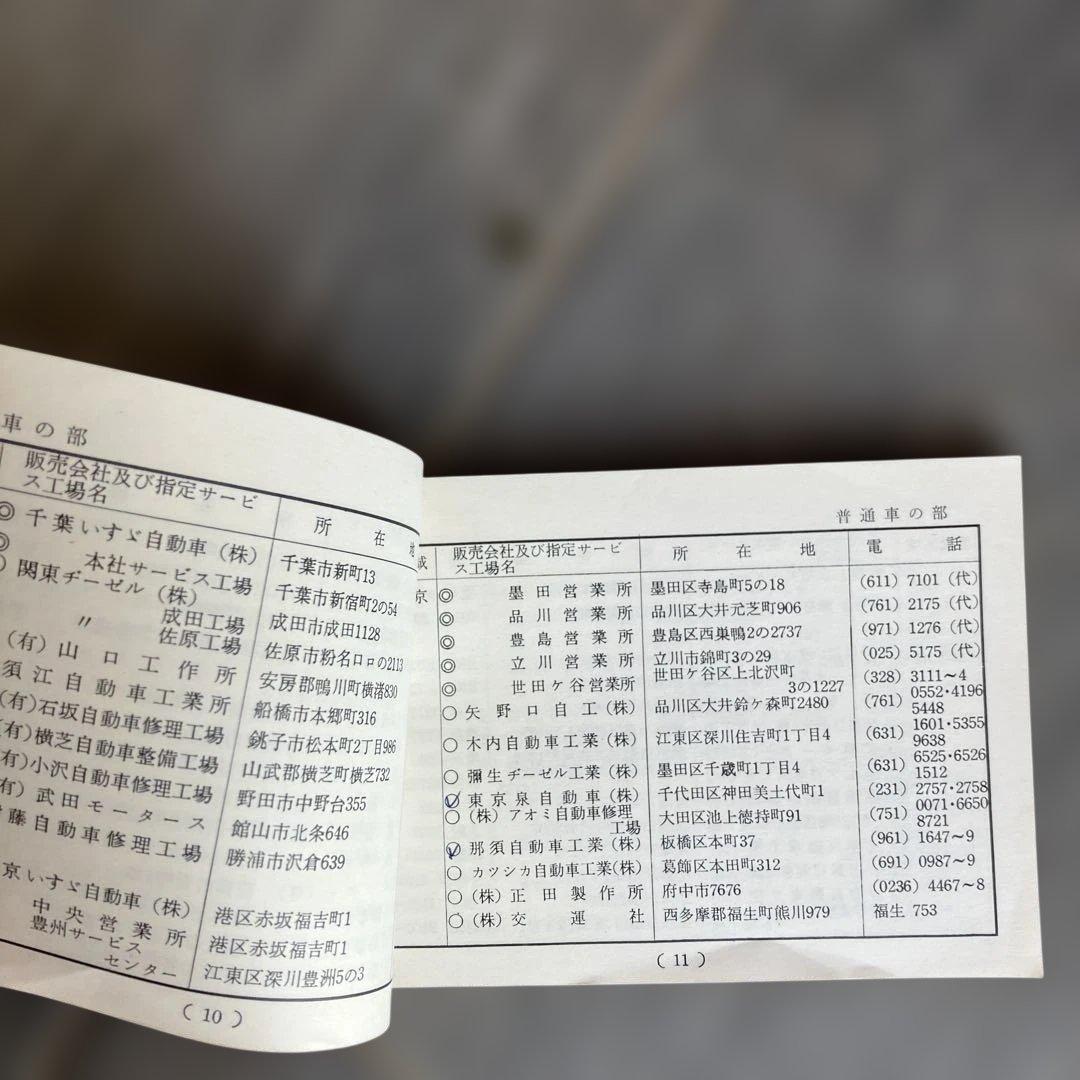 車の部
販売会社及び指定サービス工場名 所在地
◎ 千葉いすゞ自動車(株) 千葉市新町13
本社サービス工場 千葉市新宿町2の54
関東ヂーゼル(株)
〃 成田工場 成田市成田1128
佐原工場 佐原市粉名口ロの2113
(有)山口工作所 安房郡鴨川町横渚830
須江自動車工業所 船橋市本郷町316
(有)石坂自動車修理工場 銚子市松本町2丁目986
(有)横芝自動車整備工場 山武郡横芝町横芝732
(有)小沢自動車修理工場 野田市中野台355
(有)武田モータース 館山市北条646
藤自動車修理工場 勝浦市沢倉639
京いすゞ自動車(株) 港区赤坂福吉町1
中央営業所 港区赤坂福吉町1
豊州サービスセンター 江東区深川豊洲5の3
(10)
普通車の部
販売会社及び指定サービス工場名 所在地 電話
京 ◎ 墨田営業所 墨田区寺島町5の18 (611)7101(代)
◎ 品川営業所 品川区大井元芝町906 (761)2175(代)
◎ 豊島営業所 豊島区西巣鴨2の2737 (971)1276(代)
◎ 立川営業所 立川市錦町3の29 (025)5175(代)
◎ 世田ケ谷営業所 世田ケ谷区上北沢町3の1227 (328)3111〜4
○ 矢野口自工(株) 品川区大井鈴ケ森町2480 (761)0552・4196 5448
○ 木内自動車工業(株) 江東区深川住吉町1丁目4 (631)1601・5355 9638
○ 彌生ヂーゼル工業(株) 墨田区千歳町1丁目4 (631)6525・6526 1512
○ 東京泉自動車(株) 千代田区神田美土代町1 (231)2757・2758
○ (株)アオミ自動車修理工場 大田区池上徳持町91 (751)0071・6650 8721
○ 那須自動車工業(株) 板橋区本町37 (961)1647〜9
○ カツシカ自動車工業(株) 葛飾区本田町312 (691)0987〜9
○ (株)正田製作所 府中市7676 (0236)4467〜8
○ (株)交運社 西多摩郡福生町熊川979 福生 753
(11)